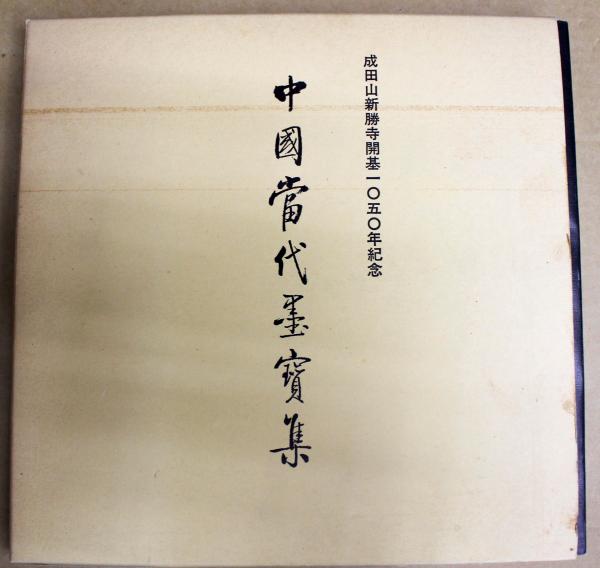 成田山新勝寺開基一〇五〇年紀念
中國當代墨寶集